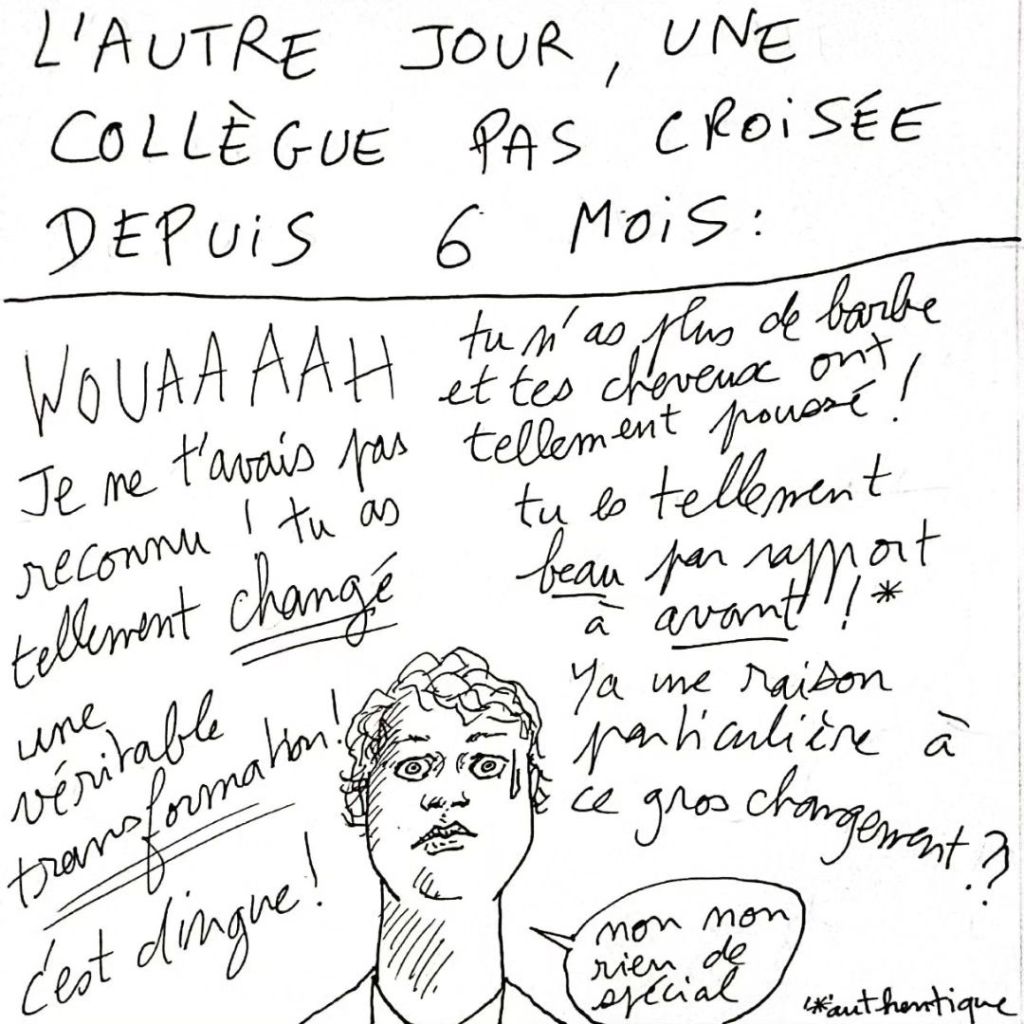 L'AUTRE JOUR, UNE
COLLÈGUE PAS CROISÉE
DEPUIS 6 MOIS:
WOUAAAAAH
Je ne t'avais pas
reconnu ! tu as
tellement changé
une
véritable
transformation!
c'est dingue!
tu n'as plus de barbe
et tes cheveux ont
tellement poussé !
tu es tellement
beau par rapport
à avant !*
Ya une raison
particulière à
ce gros changement ??
non non
rien de
spécial
*authentique